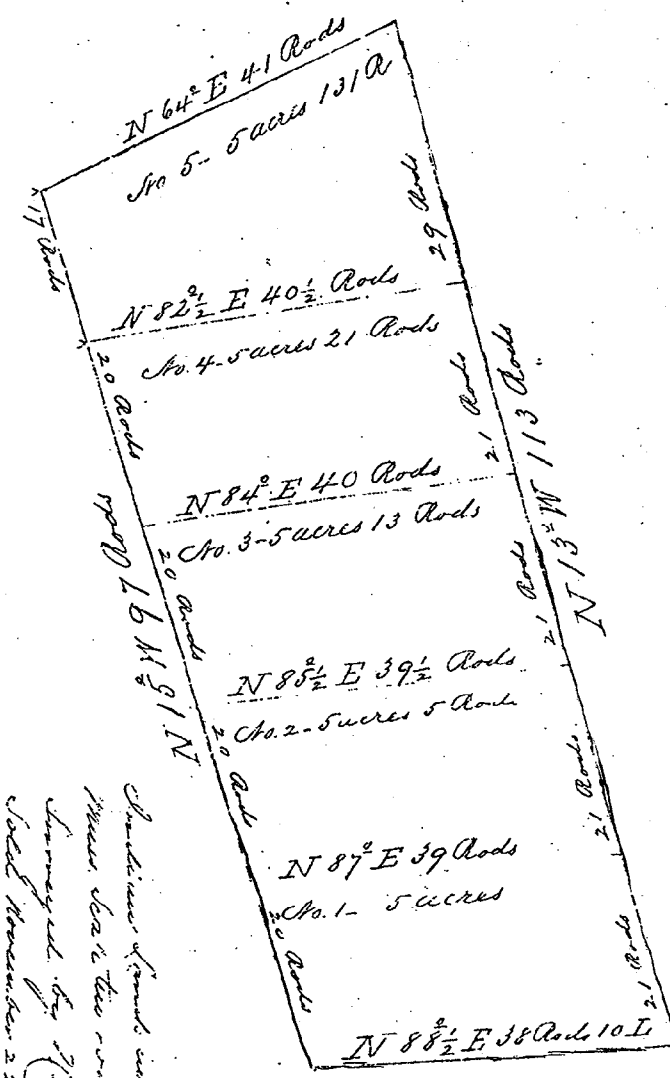 N 64° E 41 Rods
No 5 - 5 acres 131 R
17 Rods
29 Rods
N 82½° E 40½ Rods
No. 4 - 5 acres 21 Rods
20 Rods
21 Rods
N 13° W 113 Rods
N 84° E 40 Rods
No. 3 - 5 acres 13 Rods
20 Rods
21 Rods
N 16° W 97 Rods
N 85½° E 39½ Rods
No. 2 - 5 acres 5 Rods
20 Rods
21 Rods
N 87° E 39 Rods
No. 1 - 5 acres
20 Rods
21 Rods
N 88½° E 38 Rods 10 L
Indian Lands
Scale two
Surveyed by
Sold November 2